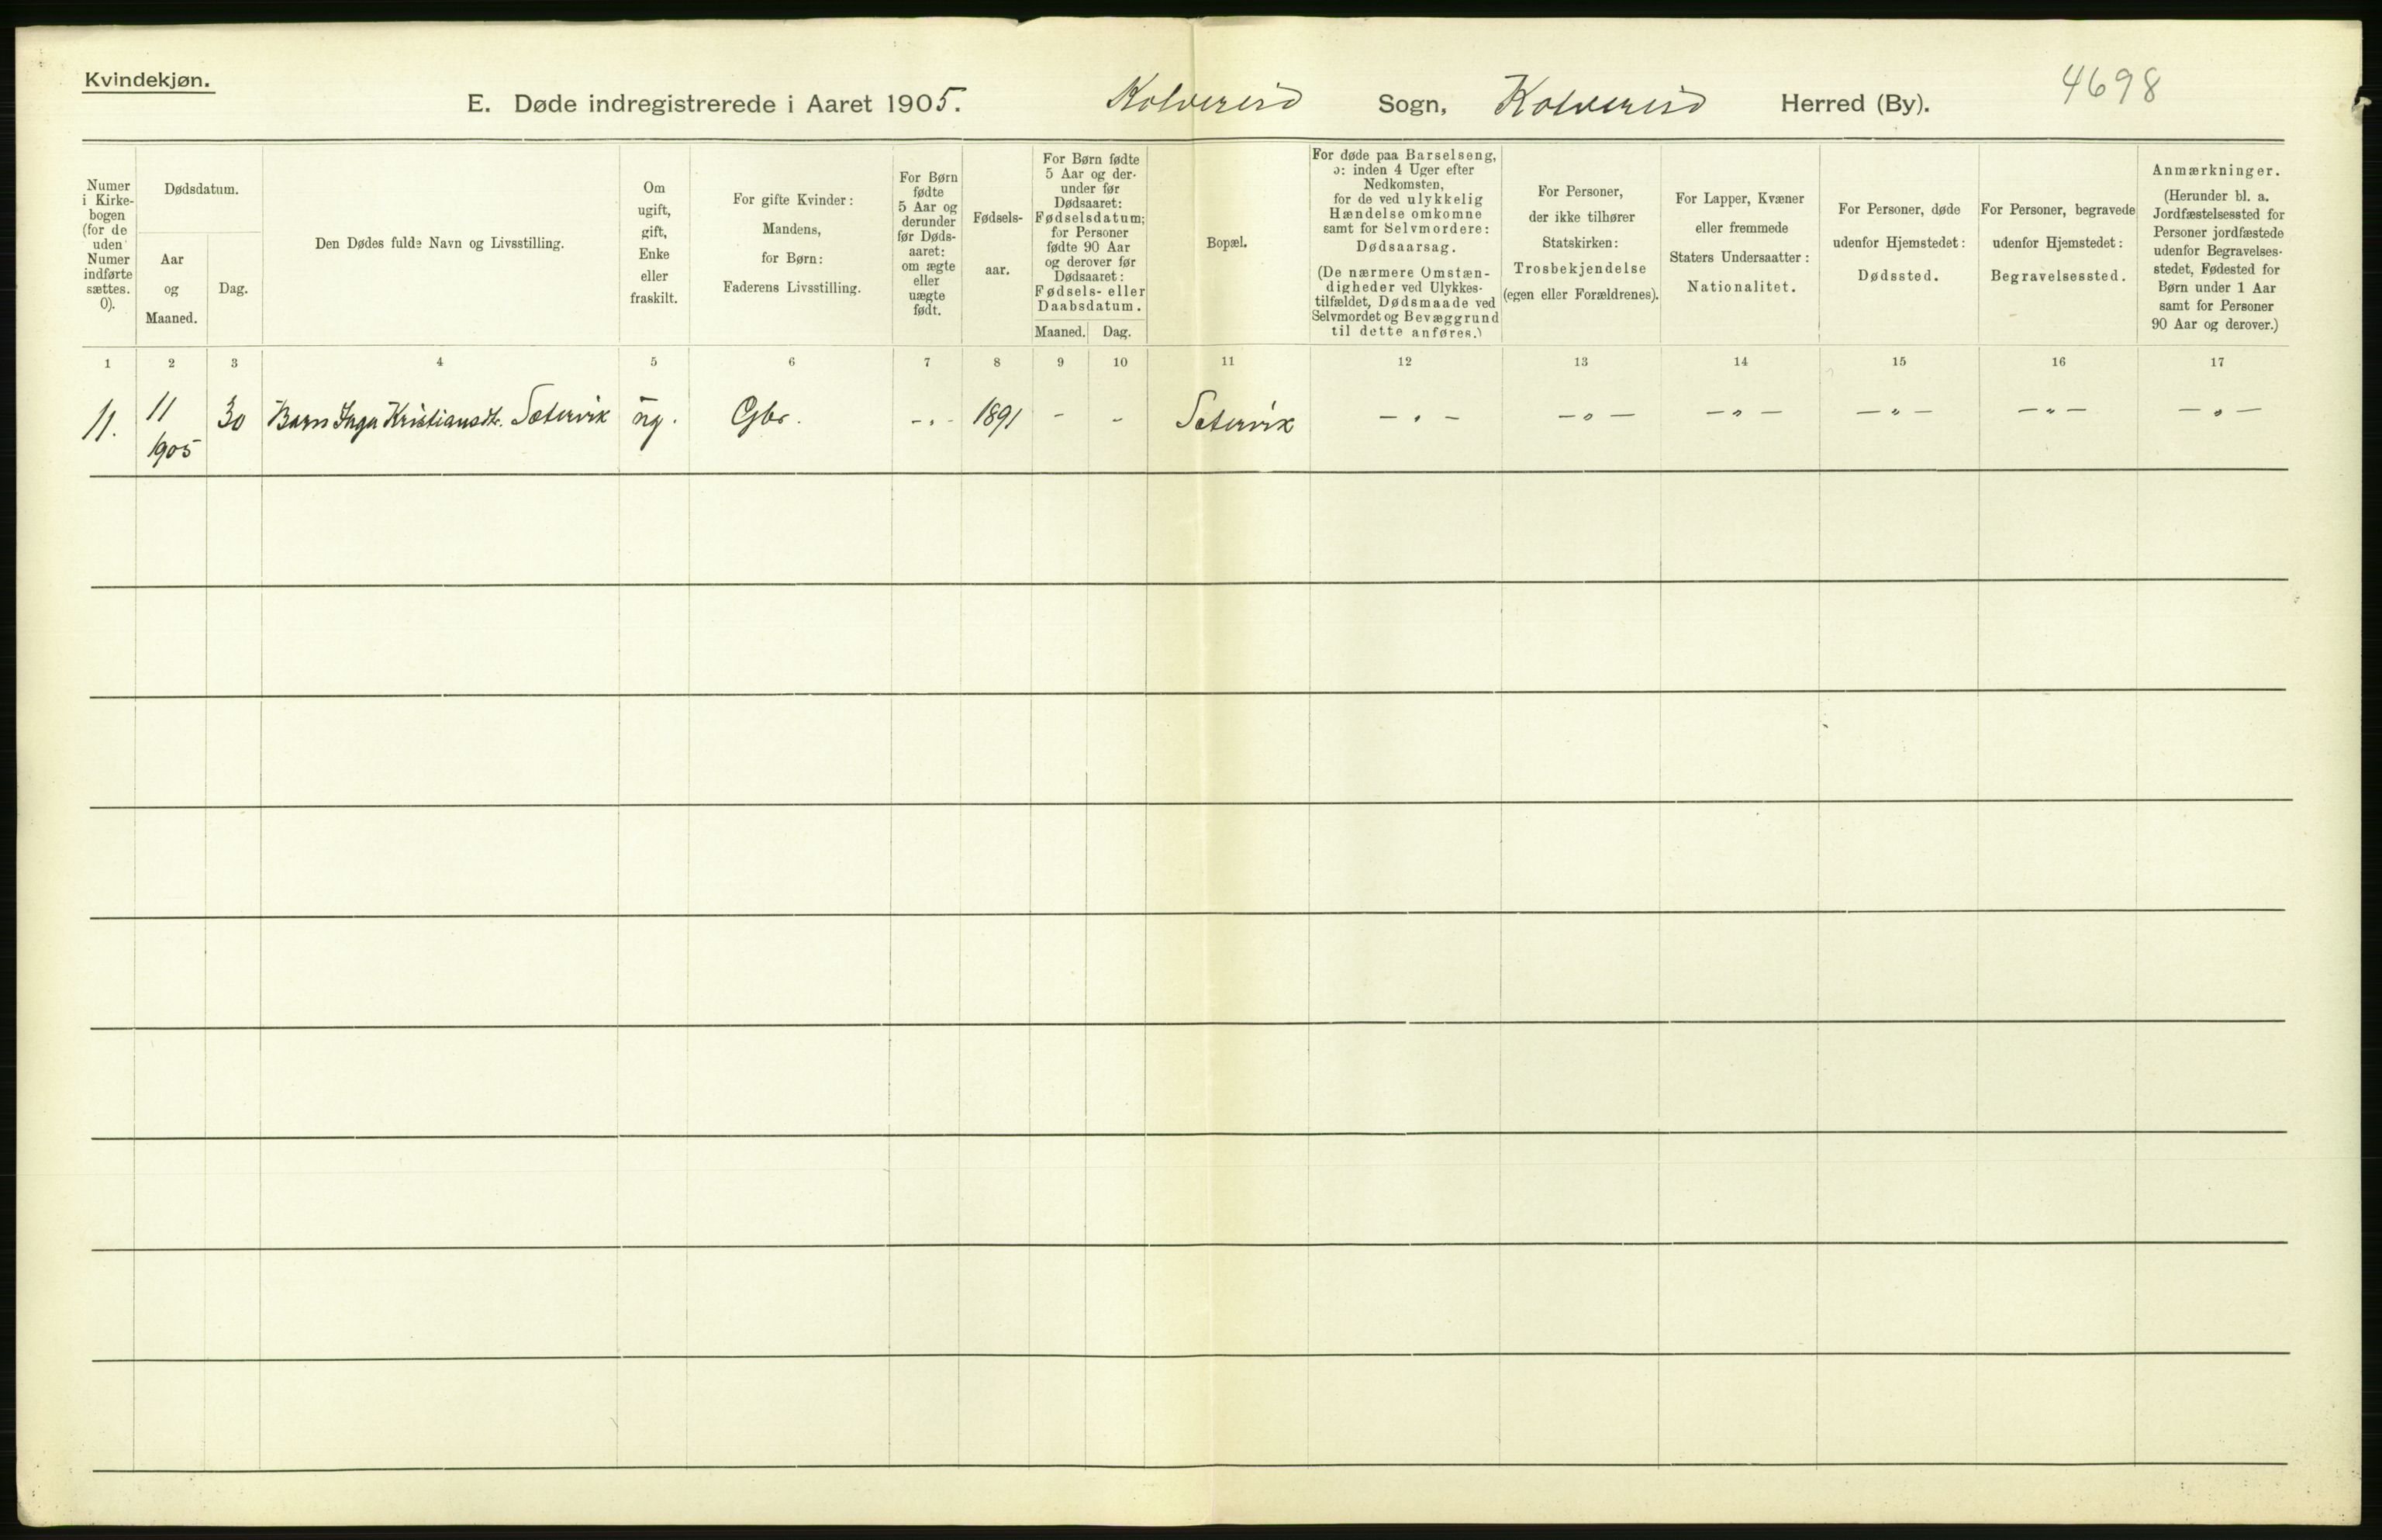 Kvindekjøn.
E. Døde indregistrerede i Aaret 1905. Kolvereid Sogn, Kolvereid Herred (By). 4698
Numer
i Kirke-
bogen
(for de
uden
Numer
indførte
sættes.
0).
Dødsdatum.
Aar
og
Maaned.
Dag.
Den Dødes fulde Navn og Livsstilling.
Om
ugift,
gift,
Enke
eller
fraskilt.
For gifte Kvinder:
Mandens,
for Børn:
Faderens Livsstilling.
For Børn
fødte
5 Aar og
derunder
før Døds-
aaret:
om ægte
eller
uægte
født.
Fødsels-
aar.
For Børn fødte
5 Aar og der-
under før
Dødsaaret:
Fødselsdatum;
for Personer
fødte 90 Aar
og derover før
Dødsaaret:
Fødsels- eller
Daabsdatum.
Maaned. Dag.
Bopæl.
For døde paa Barselseng,
ɔ: inden 4 Uger efter
Nedkomsten,
for de ved ulykkelig
Hændelse omkomne
samt for Selvmordere:
Dødsaarsag.
(De nærmere Omstæn-
digheder ved Ulykkes-
tilfældet, Dødsmaade ved
Selvmordet og Bevæggrund
til dette anføres.)
For Personer,
der ikke tilhører
Statskirken:
Trosbekjendelse
(egen eller Forældrenes).
For Lapper, Kvæner
eller fremmede
Staters Undersaatter:
Nationalitet.
For Personer, døde
udenfor Hjemstedet:
Dødssted.
For Personer, begravede
udenfor Hjemstedet:
Begravelsessted.
Anmærkninger.
(Herunder bl. a.
Jordfæstelsessted for
Personer jordfæstede
udenfor Begravelses-
stedet, Fødested for
Børn under 1 Aar
samt for Personer
90 Aar og derover.)
1 2 3 4 5 6 7 8 9 10 11 12 13 14 15 16 17
11. 11 30 Barn Inga Kristiansdtr. Sætervik ug. Gbr. - " - 1891 - - Sætervik - " - - " - - " - - " - - " - - " -
1905